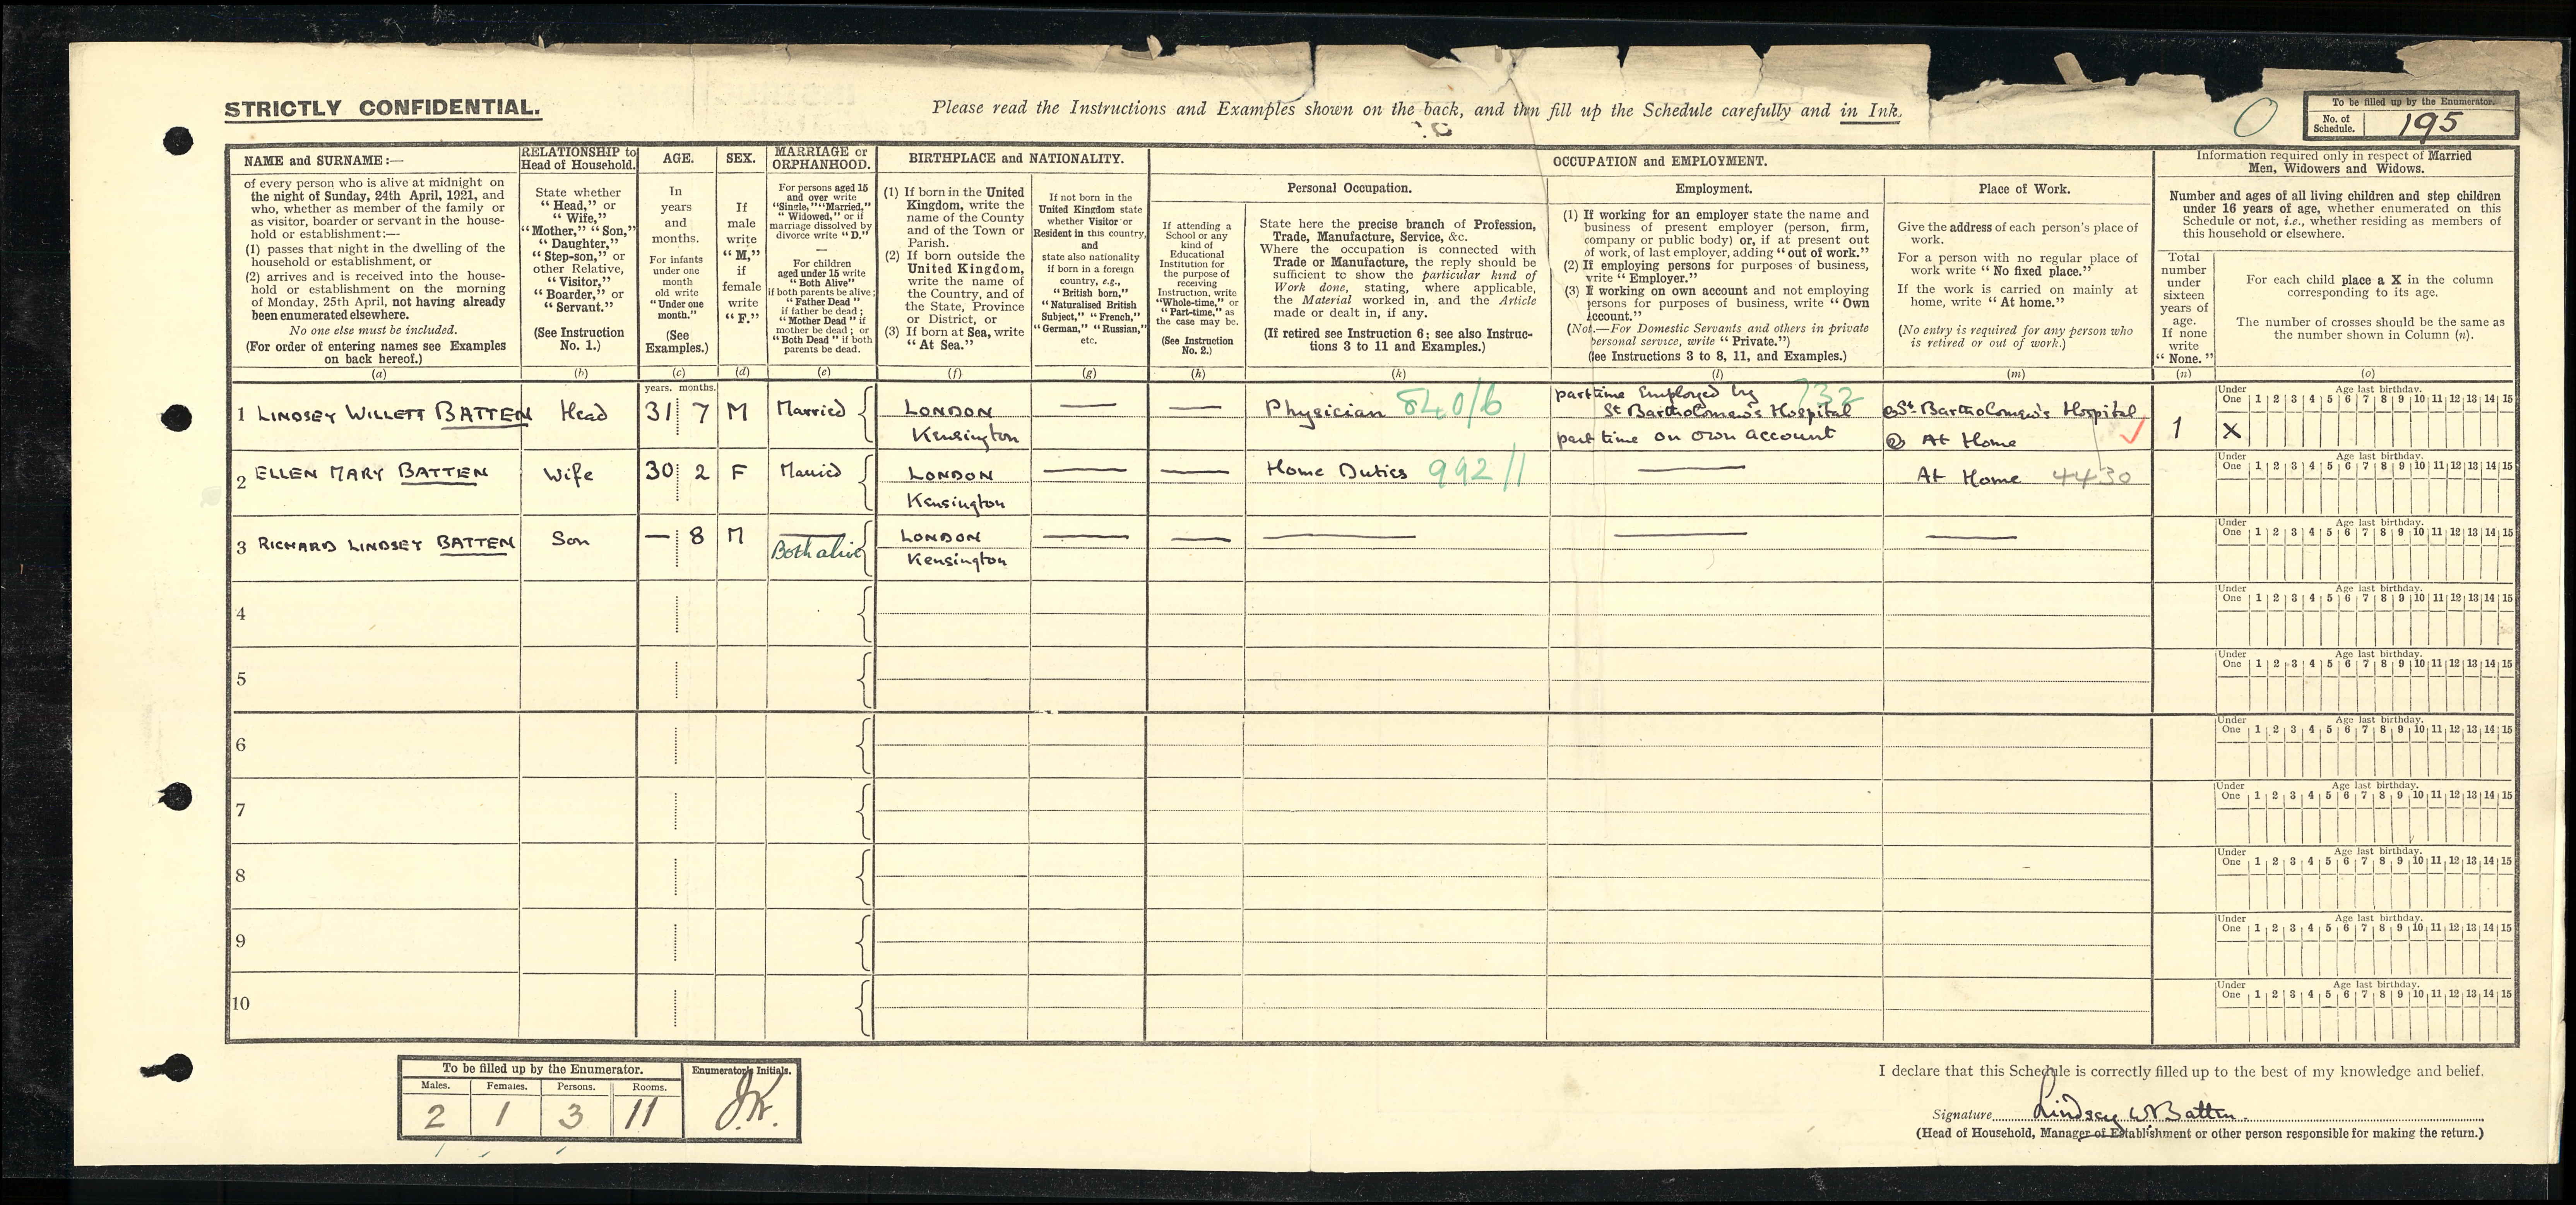 STRICTLY CONFIDENTIAL.
Please read the Instructions and Examples shown on the back, and then fill up the Schedule carefully and in Ink.
To be filled up by the Enumerator.
No. of Schedule. 195
NAME and SURNAME:—
of every person who is alive at midnight on
the night of Sunday, 24th April, 1921, and
who, whether as member of the family or
as visitor, boarder or servant in the house-
hold or establishment:—
(1) passes that night in the dwelling of the
household or establishment, or
(2) arrives and is received into the house-
hold or establishment on the morning
of Monday, 25th April, not having already
been enumerated elsewhere.
No one else must be included.
(For order of entering names see Examples
on back hereof.)
(a)
RELATIONSHIP to
Head of Household.
State whether
"Head," or
"Wife,"
"Mother," "Son,"
"Daughter,"
"Step-son," or
other Relative,
"Visitor,"
"Boarder," or
"Servant."
(See Instruction
No. 1.)
(b)
AGE.
In
years
and
months.
For infants
under one
month
old write
"Under one
month."
(See
Examples.)
(c)
SEX.
If
male
write
"M,"
if
female
write
"F."
(d)
MARRIAGE or
ORPHANHOOD.
For persons aged 15
and over write
"Single," "Married,"
"Widowed," or if
marriage dissolved by
divorce write "D."
—
For children
aged under 15 write
"Both Alive"
if both parents be alive;
"Father Dead"
if father be dead;
"Mother Dead" if
mother be dead; or
"Both Dead" if both
parents be dead.
(e)
BIRTHPLACE and NATIONALITY.
(1) If born in the United
Kingdom, write the
name of the County
and of the Town or
Parish.
(2) If born outside the
United Kingdom,
write the name of
the Country, and of
the State, Province
or District, or
(3) If born at Sea, write
"At Sea."
(f)
If not born in the
United Kingdom state
whether Visitor or
Resident in this country,
and
state also nationality
if born in a foreign
country, e.g.,
"British born,"
"Naturalised British
Subject," "French,"
"German," "Russian,"
etc.
(g)
OCCUPATION and EMPLOYMENT.
If attending a
School or any
kind of
Educational
Institution for
the purpose of
receiving
Instruction, write
"Whole-time," or
"Part-time," as
the case may be.
(See Instruction
No. 2.)
(h)
Personal Occupation.
State here the precise branch of Profession,
Trade, Manufacture, Service, &c.
Where the occupation is connected with
Trade or Manufacture, the reply should be
sufficient to show the particular kind of
Work done, stating, where applicable,
the Material worked in, and the Article
made or dealt in, if any.
(If retired see Instruction 6; see also Instruc-
tions 3 to 11 and Examples.)
(k)
Employment.
(1) If working for an employer state the name and
business of present employer (person, firm,
company or public body) or, if at present out
of work, of last employer, adding "out of work."
(2) If employing persons for purposes of business,
write "Employer."
(3) If working on own account and not employing
persons for purposes of business, write "Own
Account."
(Not.—For Domestic Servants and others in private
personal service, write "Private.")
(See Instructions 3 to 8, 11, and Examples.)
(l)
Place of Work.
Give the address of each person's place of
work.
For a person with no regular place of
work write "No fixed place."
If the work is carried on mainly at
home, write "At home."
(No entry is required for any person who
is retired or out of work.)
(m)
Information required only in respect of Married
Men, Widowers and Widows.
Number and ages of all living children and step children
under 16 years of age, whether enumerated on this
Schedule or not, i.e., whether residing as members of
this household or elsewhere.
Total
number
under
sixteen
years of
age.
If none
write
"None."
(n)
For each child place a X in the column
corresponding to its age.
The number of crosses should be the same as
the number shown in Column (n).
(o)
years. months.
1 LINDSEY WILLETT BATTEN Head 31 7 M Married LONDON Kensington — — Physician 840/6 part time Employed by St Bartholomew's Hospital 732 part time on own account St. Bartholomew's Hospital ② At Home 1 X
Under One Age last birthday. 1 2 3 4 5 6 7 8 9 10 11 12 13 14 15
2 ELLEN MARY BATTEN Wife 30 2 F Married LONDON Kensington — — Home Duties 992/1 — At Home 4430
Under One Age last birthday. 1 2 3 4 5 6 7 8 9 10 11 12 13 14 15
3 RICHARD LINDSEY BATTEN Son — 8 M Both alive LONDON Kensington — — — — —
Under One Age last birthday. 1 2 3 4 5 6 7 8 9 10 11 12 13 14 15
4
Under One Age last birthday. 1 2 3 4 5 6 7 8 9 10 11 12 13 14 15
5
Under One Age last birthday. 1 2 3 4 5 6 7 8 9 10 11 12 13 14 15
6
Under One Age last birthday. 1 2 3 4 5 6 7 8 9 10 11 12 13 14 15
7
Under One Age last birthday. 1 2 3 4 5 6 7 8 9 10 11 12 13 14 15
8
Under One Age last birthday. 1 2 3 4 5 6 7 8 9 10 11 12 13 14 15
9
Under One Age last birthday. 1 2 3 4 5 6 7 8 9 10 11 12 13 14 15
10
Under One Age last birthday. 1 2 3 4 5 6 7 8 9 10 11 12 13 14 15
To be filled up by the Enumerator.
Males. Females. Persons. Rooms.
2 1 3 11
Enumerator's Initials.
J.K.
I declare that this Schedule is correctly filled up to the best of my knowledge and belief.
Signature Lindsey W Batten.
(Head of Household, Manager of Establishment or other person responsible for making the return.)